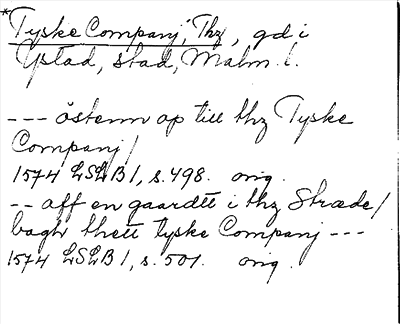 *Tyske Companj, Thz, gd i
Ystad, stad, Malm. l.
--- östenn op till thz Tyske
Companj/
1574 LSLB 1, s. 498. orig.
-- aff en gaardtt i thz Stræde/
bagh thett tyske Companj ---
1574 LSLB 1, s. 501. orig.